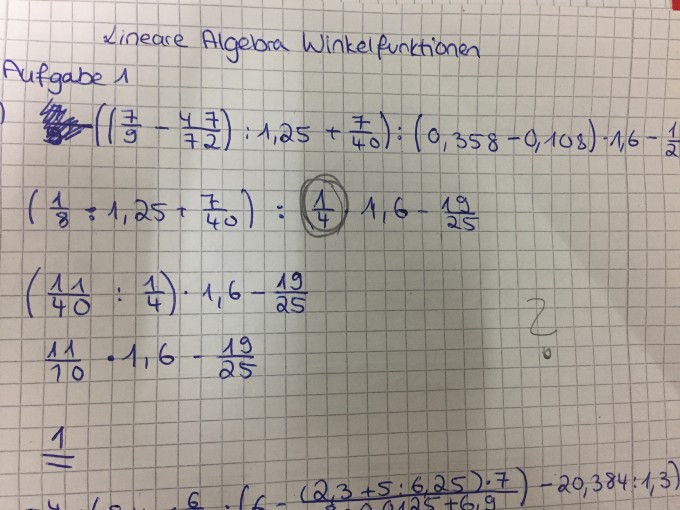 Lineare Algebra Winkelfunktionen
Aufgabe 1
) ((7/9 - 47/72) : 1,25 + 7/40) : (0,358 - 0,108) · 1,6 - 1/2
(1/8 : 1,25 + 7/40) : 1/4 1,6 - 19/25
(11/40 : 1/4) · 1,6 - 19/25
?
11/10 · 1,6 - 19/25
1
(2,3 + 5 : 6,25) · 7) - 20,384 : 1,3)